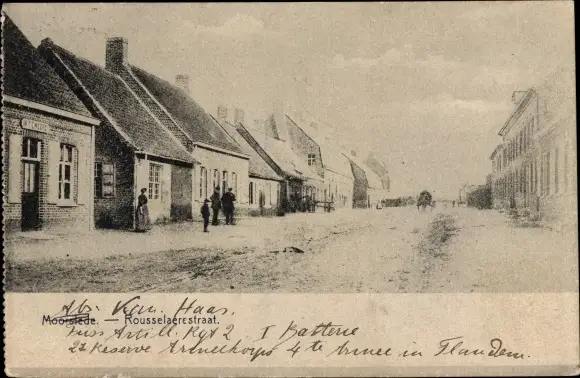 Moorslede. — Rousselaerestraat.
Abs. Kgn. Haas.
Fuss Artill. Rgt 2 I Batterie
22 Reserve Armeekorps 4 te Armee in Flandern.